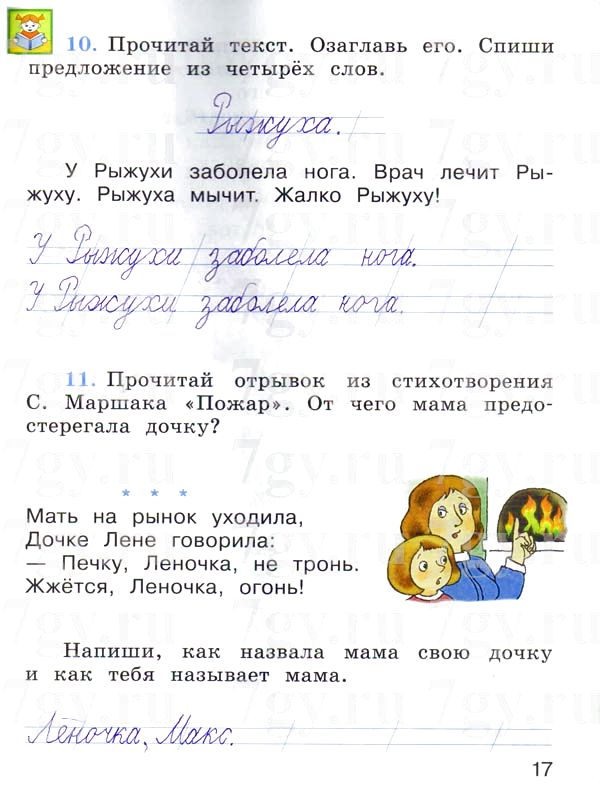 10. Прочитай текст. Озаглавь его. Спиши
предложение из четырёх слов.
Рыжуха.
У Рыжухи заболела нога. Врач лечит Ры-
жуху. Рыжуха мычит. Жалко Рыжуху!
У Рыжухи заболела нога.
У Рыжухи заболела нога.
11. Прочитай отрывок из стихотворения
С. Маршака «Пожар». От чего мама предо-
стерегала дочку?
* * *
Мать на рынок уходила,
Дочке Лене говорила:
— Печку, Леночка, не тронь.
Жжётся, Леночка, огонь!
Напиши, как назвала мама свою дочку
и как тебя называет мама.
Леночка, Макс.
17
7gy.ru